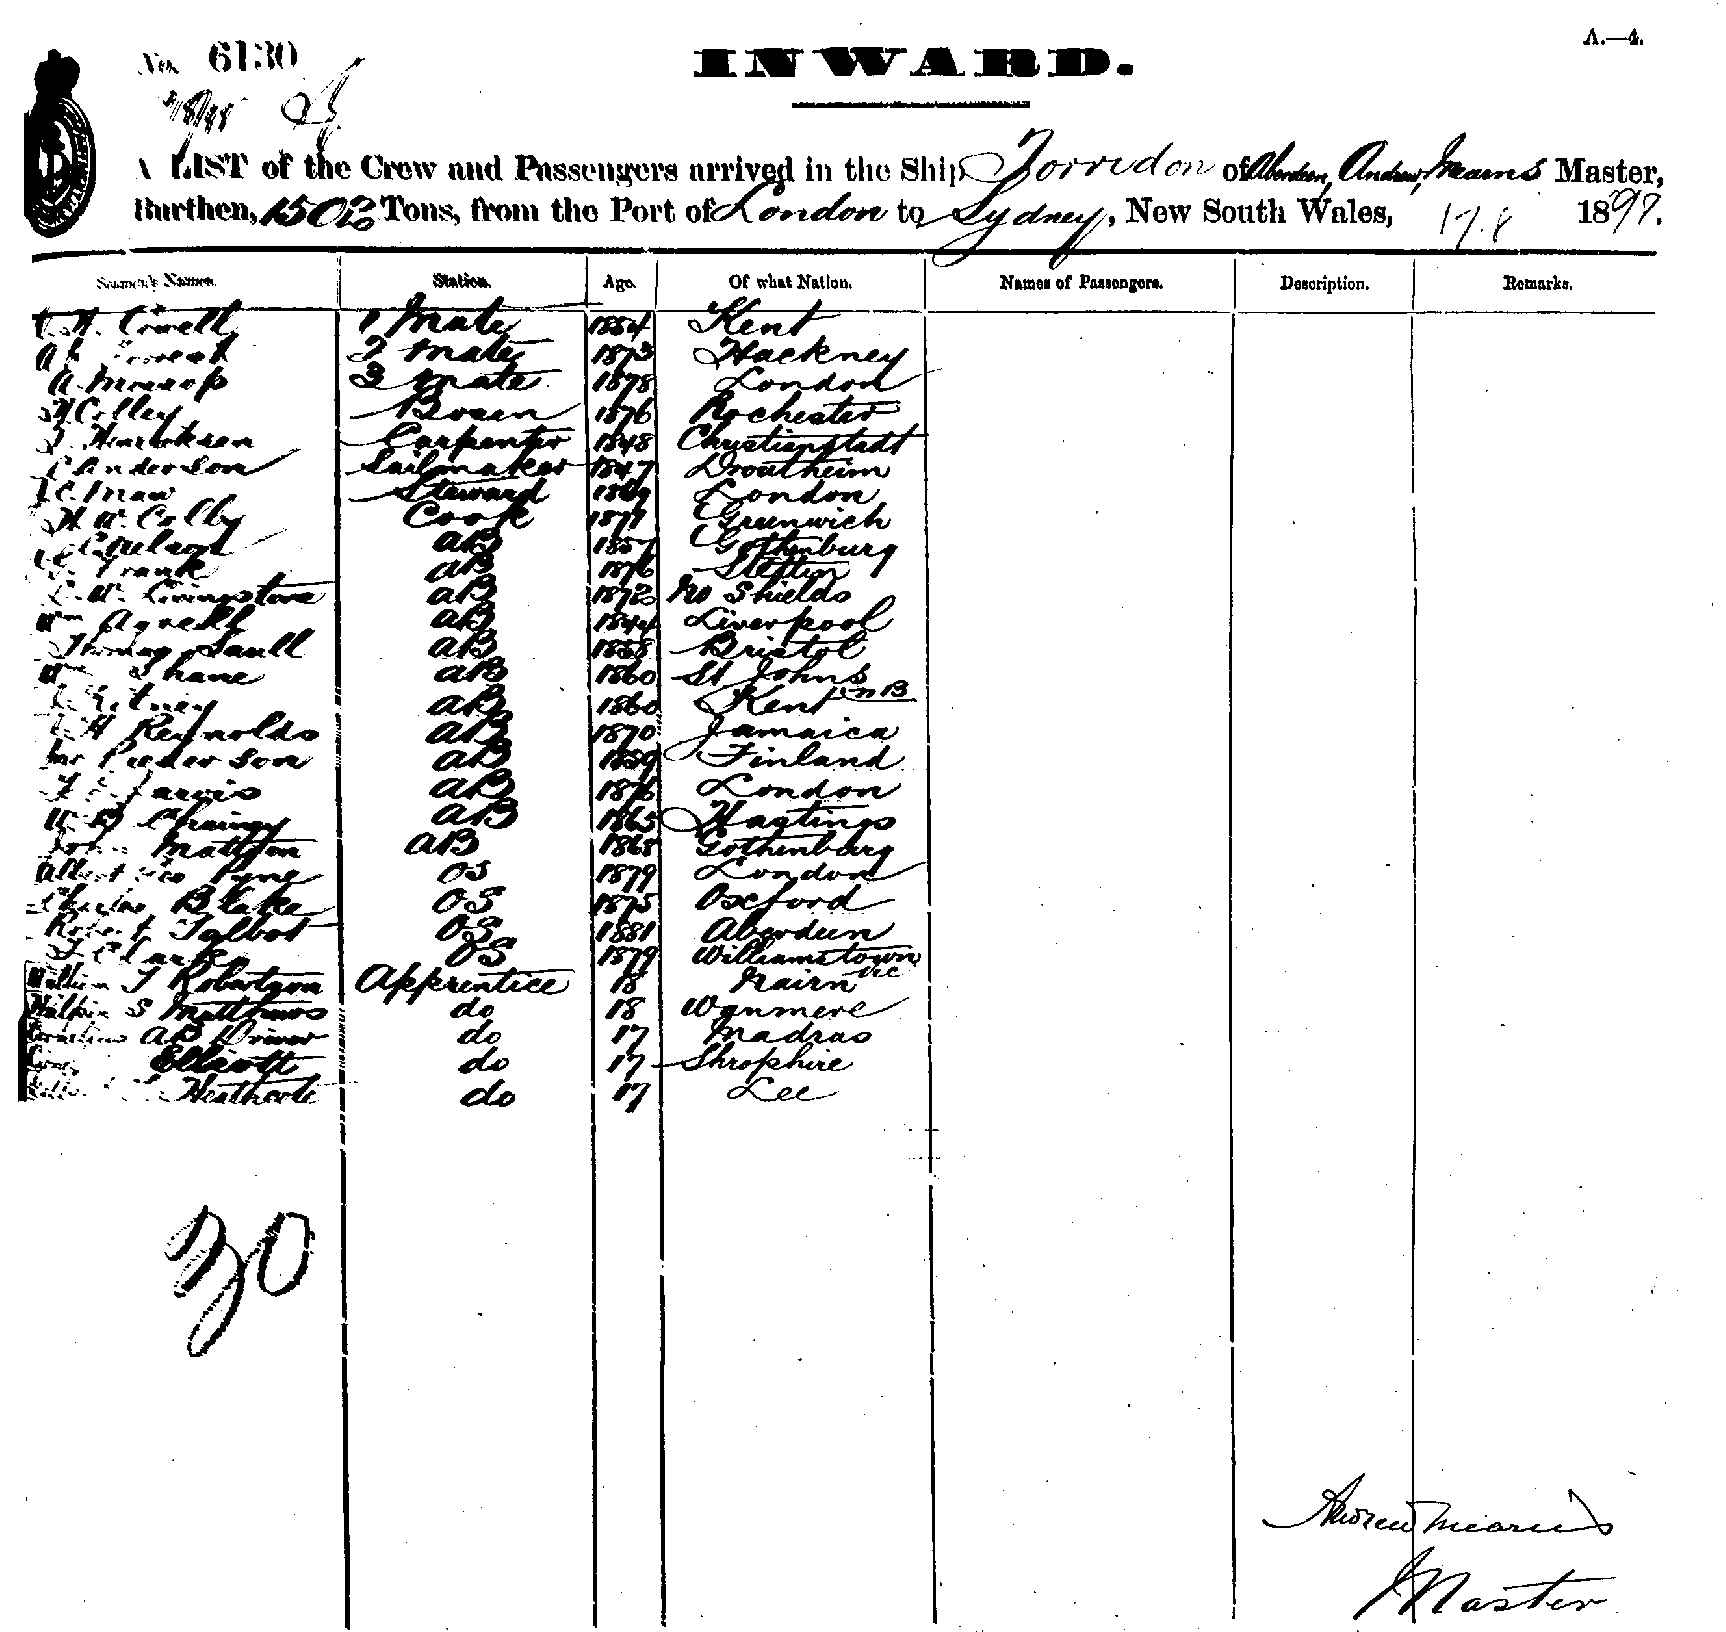 A.—4.
No. 6130
INWARD.
A LIST of the Crew and Passengers arrived in the Ship Torridon of Aberdeen, Andrew Mearns Master,
Burthen, 1502 Tons, from the Port of London to Sydney, New South Wales, 17.8 1897.
Seamen's Names. Station. Age. Of what Nation. Names of Passengers. Description. Remarks.
1 Mate 1854 Kent
A 2 Mate 1873 Hackney
A. 3 Mate 1878 London
Colley Bosen 1876 Rochester
Carpenter 1848 Christianstadt
Anderson Sailmaker 1847 Drontheim
C. Maw Steward 1869 London
H. W. Colby Cook 1877 Greenwich
AB 1857 Gothenburg
Frank AB 1876 Stettin
W. Livingstone AB 1872 No Shields
Wm Agnell AB 1844 Liverpool
Thomas Saull AB 1858 Bristol
Wm Shane AB 1860 St Johns NB
AB 1860 Kent
H Reynolds AB 1870 Jamaica
AB 1859 Finland
Jarvis AB 1876 London
W AB 1865 Hastings
John Mattson AB 1868 Gothenburg
Albert Geo Pyne OS 1879 London
Charles Blake OS 1875 Oxford
Robert Talbot OS 1881 Aberdeen
Clark OS 1879 Williamstown Vic
William J Robertson Apprentice 18 Nairn
S Matthews do 18
Cornelius AB Driver do 17 Madras
Elliott do 17 Shropshire
Heathcote do 17 Lee
30
Andrew Mearns
Master